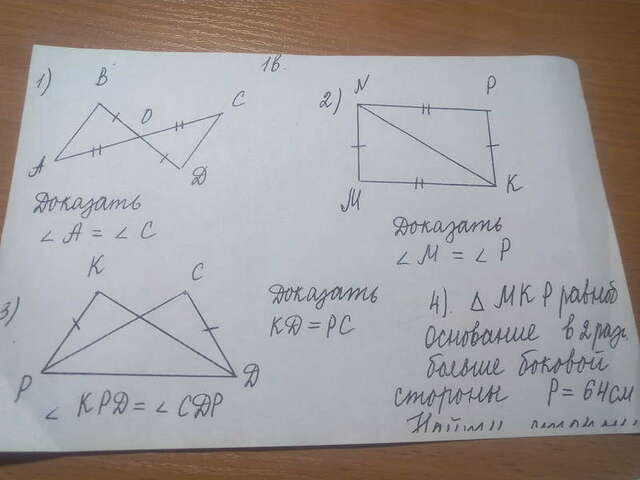 1в.
1)
B
O
C
A
D
Доказать
∠ A = ∠ C
2)
N
P
M
K
Доказать
∠ M = ∠ P
3)
K
C
P
D
∠ KPD = ∠ CDP
Доказать
KD = PC
4). △ MKP равноб
Основание в 2 раз.
больше боковой
стороны P = 64см
Найти